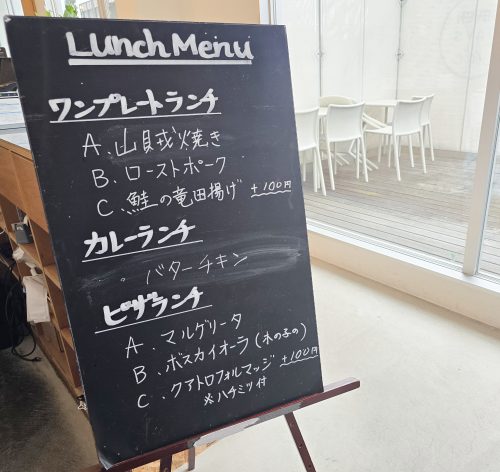 Lunch Menu
ワンプレートランチ
A. 山賊焼き
B. ローストポーク
C. 鮭の竜田揚げ +100円
カレーランチ
・バターチキン
ピザランチ
A. マルゲリータ
B. ボスカイオーラ(木の子の)
C. クアトロフォルマッジ +100円
※ハチミツ付